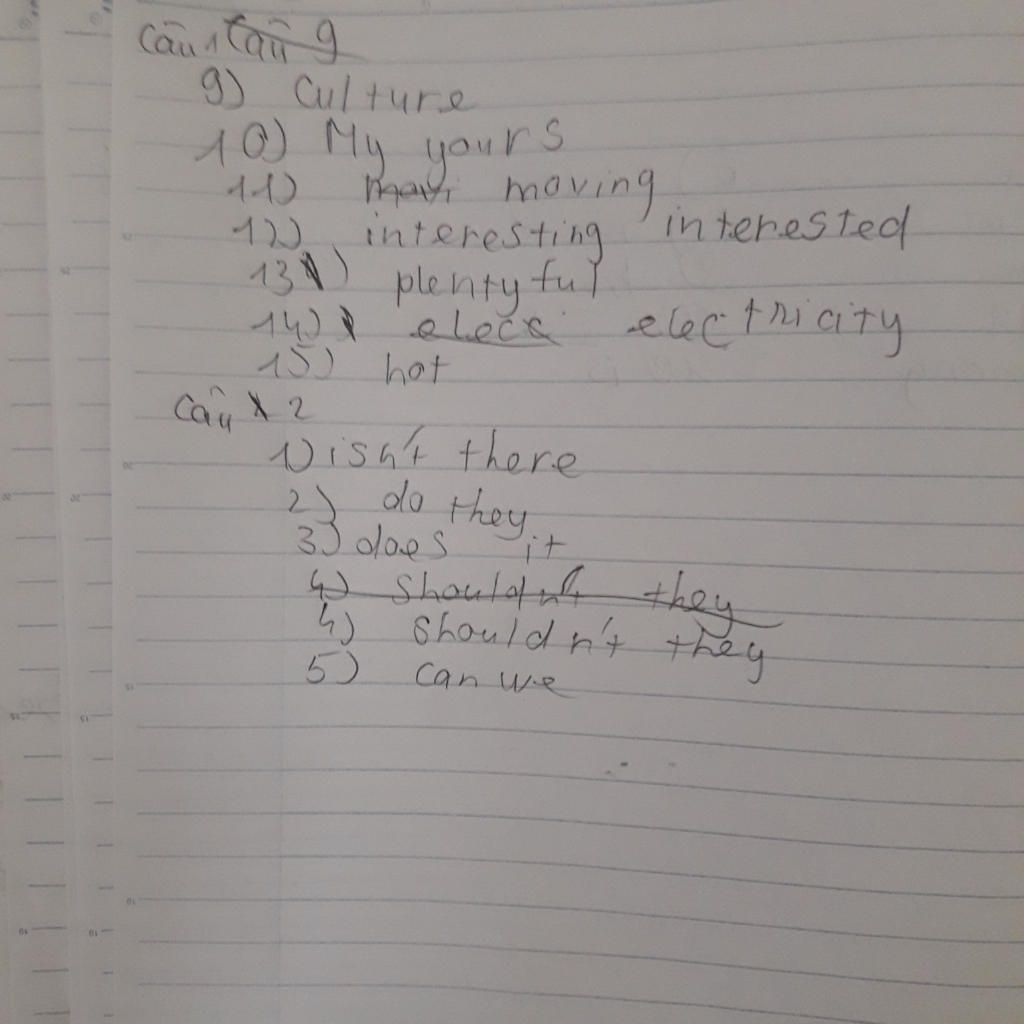 Câu 1 Câu 9
9) Culture
10) My yours
11) movi moving
12) interesting interested
13) plentyful
14) elece electricity
15) hot
Câu 2
1) isn't there
2) do they
3) does it
4) shouldn't they
4) shouldn't they
5) can we